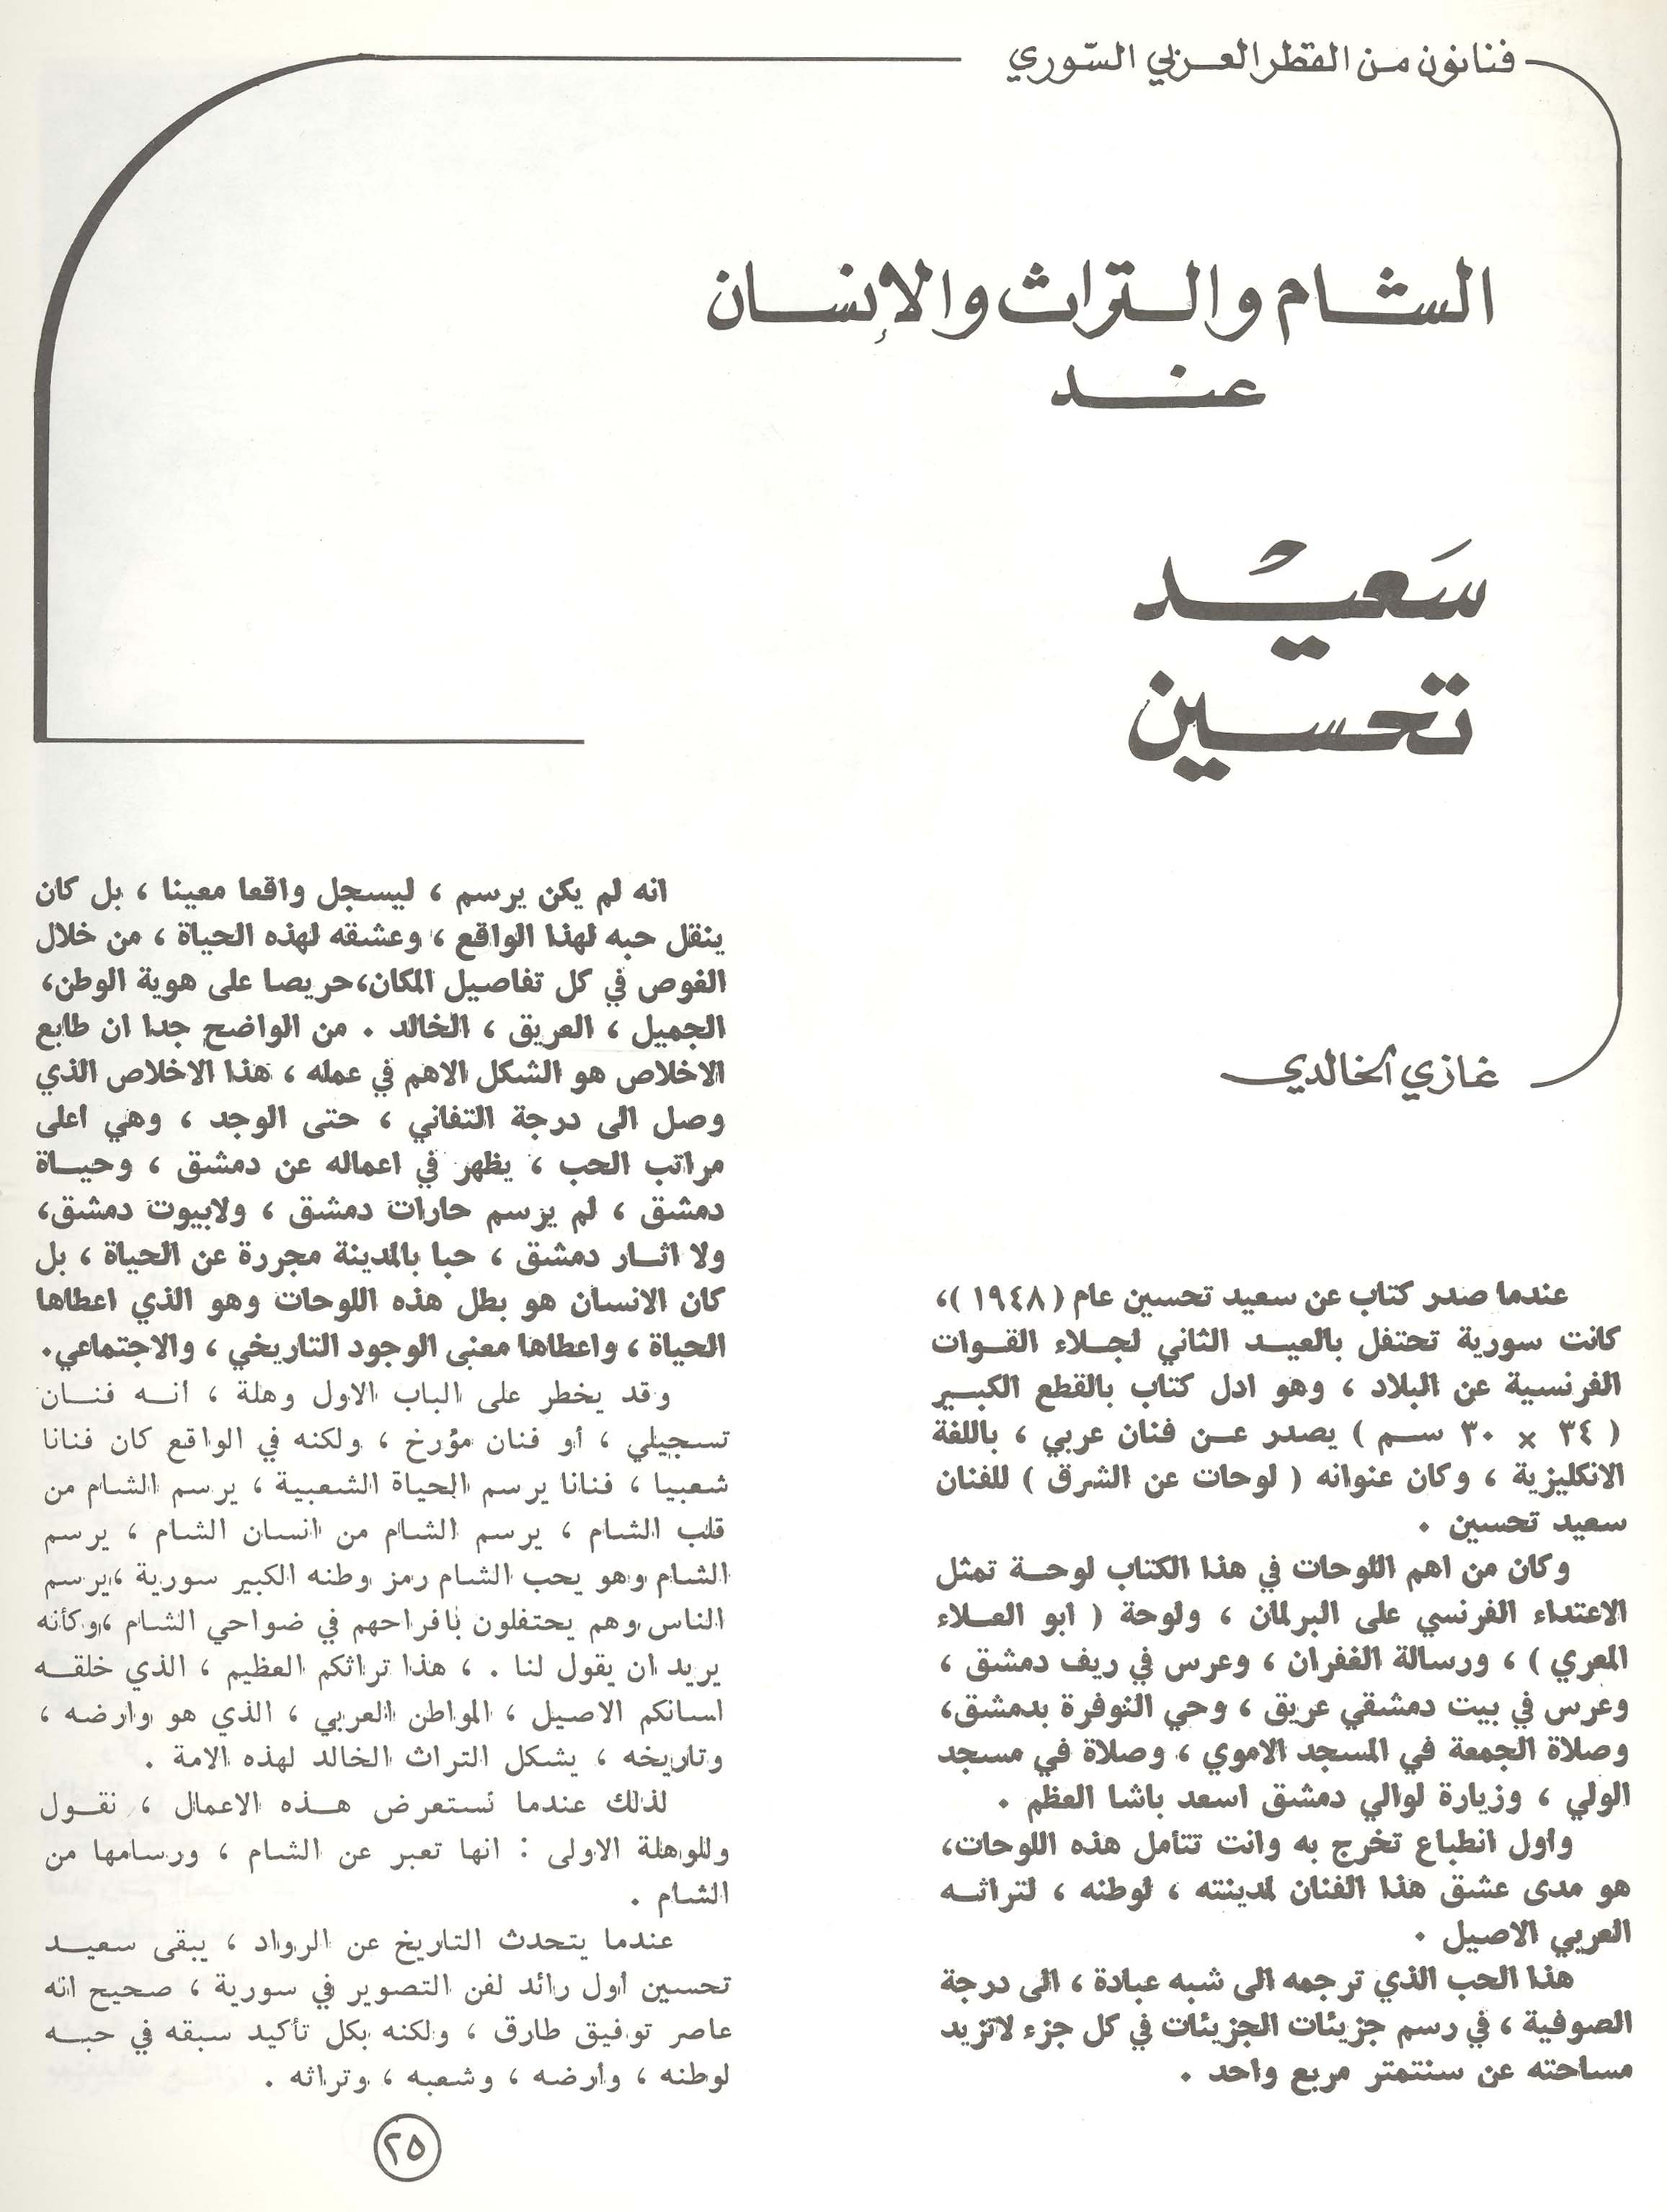 فنانون من القطر العربي السّوري
الشام والتراث والإنسان
عند
سَعيْد
تحسين
غازي الخالدي
عندما صدر كتاب عن سعيد تحسين عام ( ١٩٤٨ )،
كانت سورية تحتفل بالعيد الثاني لجلاء القوات
الفرنسية عن البلاد ، وهو ادل كتاب بالقطع الكبير
( ٣٤ × ٣٠ سم ) يصدر عن فنان عربي ، باللغة
الانكليزية ، وكان عنوانه ( لوحات عن الشرق ) للفنان
سعيد تحسين .
وكان من اهم اللوحات في هذا الكتاب لوحة تمثل
الاعتداء الفرنسي على البرلمان ، ولوحة ( ابو العلاء
المعري ) ، ورسالة الغفران ، وعرس في ريف دمشق ،
وعرس في بيت دمشقي عريق ، وحي النوفرة بدمشق،
وصلاة الجمعة في المسجد الاموي ، وصلاة في مسجد
الولي ، وزيارة لوالي دمشق اسعد باشا العظم .
واول انطباع تخرج به وانت تتأمل هذه اللوحات،
هو مدى عشق هذا الفنان لمدينته ، لوطنه ، لتراثه
العربي الاصيل .
هذا الحب الذي ترجمه الى شبه عبادة ، الى درجة
الصوفية ، في رسم جزيئات الجزيئات في كل جزء لاتزيد
مساحته عن سنتمتر مربع واحد .
انه لم يكن يرسم ، ليسجل واقعا معينا ، بل كان
ينقل حبه لهذا الواقع ، وعشقه لهذه الحياة ، من خلال
الغوص في كل تفاصيل المكان،حريصا على هوية الوطن،
الجميل ، العريق ، الخالد . من الواضح جدا ان طابع
الاخلاص هو الشكل الاهم في عمله ، هذا الاخلاص الذي
وصل الى درجة التفاني ، حتى الوجد ، وهي اعلى
مراتب الحب ، يظهر في اعماله عن دمشق ، وحياة
دمشق ، لم يرسم حارات دمشق ، ولابيوت دمشق،
ولا اثار دمشق ، حبا بالمدينة مجررة عن الحياة ، بل
كان الانسان هو بطل هذه اللوحات وهو الذي اعطاها
الحياة ، واعطاها معنى الوجود التاريخي ، والاجتماعي.
وقد يخطر على الباب الاول وهلة ، أنه فنان
تسجيلي ، أو فنان مؤرخ ، ولكنه في الواقع كان فنانا
شعبيا ، فنانا يرسم الحياة الشعبية ، يرسم الشام من
قلب الشام ، يرسم الشام من انسان الشام ، يرسم
الشام وهو يحب الشام رمز وطنه الكبير سورية ،يرسم
الناس وهم يحتفلون بافراحهم في ضواحي الشام ،وكأنه
يريد ان يقول لنا . ، هذا تراثكم العظيم ، الذي خلقه
اسانكم الاصيل ، المواطن العربي ، الذي هو وارضه ،
وتاريخه ، يشكل التراث الخالد لهذه الامة .
لذلك عندما نستعرض هذه الاعمال ، نقول
وللوهلة الاولى : انها تعبر عن الشام ، ورسامها من
الشام .
عندما يتحدث التاريخ عن الرواد ، يبقى سعيد
تحسين أول رائد لفن التصوير في سورية ، صحيح انه
عاصر توفيق طارق ، ولكنه بكل تأكيد سبقه في حبه
لوطنه ، وأرضه ، وشعبه ، وتراثه .
٢٥